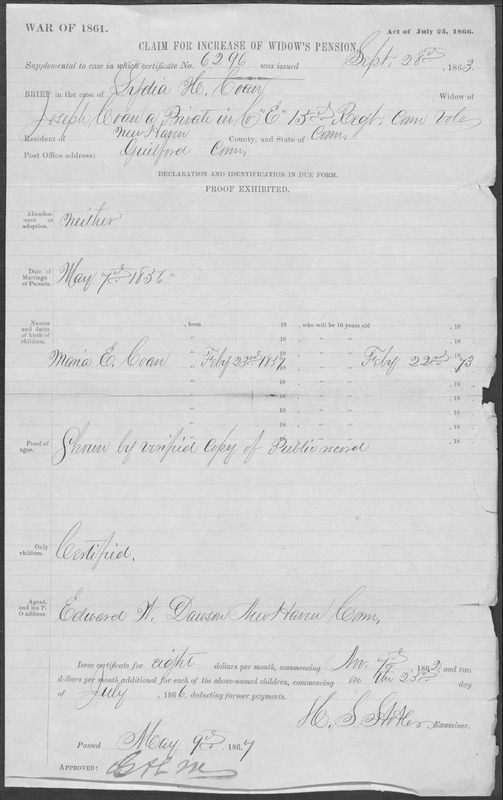 WAR OF 1861.
Act of July 25, 1866.
CLAIM FOR INCREASE OF WIDOW'S PENSION,
Supplemental to case in which certificate No. 6296 was issued Sept. 28th, 1863.
BRIEF in the case of Lydia H. Coan, Widow of
Joseph Coan a Private in Co "E" 15th Regt. Conn Vols
Resident of New Haven County, and State of Conn,
Post Office address: Guilford Conn,
DECLARATION AND IDENTIFICATION IN DUE FORM.
PROOF EXHIBITED.
Abandonment or adoption. Neither
Date of Marriage of Parents. May 7th 1856
Names and dates of birth of children.
, born 18 , who will be 16 years old , 18
Maria E. Coan " Feby 23rd 1857 " " " Feby 22nd 1873
" " " " " , 18
" " " " " , 18
" " " " " , 18
, 18
Proof of ages. Shown by verified copy of Public record
Only children. Certified.
Agent, and his P. O. address. Edward W. Dawson New Haven Conn,
Issue certificate for eight dollars per month, commencing Nov. 7th, 1862, and two
dollars per month additional for each of the above-named children, commencing on the 25th day
of July, 1866, deducting former payments.
H. S. Examiner.
Passed May 9th 1867
APPROVED: